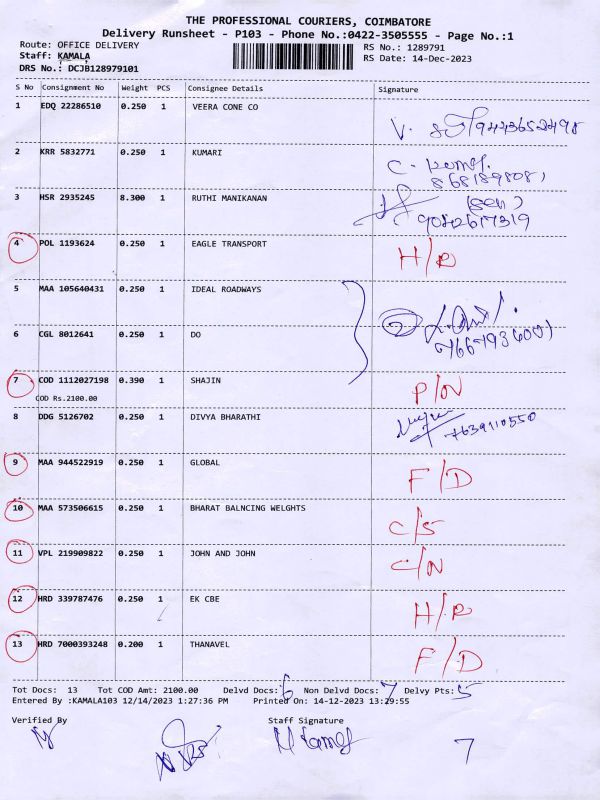 THE PROFESSIONAL COURIERS, COIMBATORE
Delivery Runsheet - P103 - Phone No.:0422-3505555 - Page No.:1
Route: OFFICE DELIVERY RS No.: 1289791
Staff: KAMALA RS Date: 14-Dec-2023
DRS No.: DCJB128979101
S No Consignment No Weight PCS Consignee Details Signature
1 EDQ 22286510 0.250 1 VEERA CONE CO
V.
2 KRR 5832771 0.250 1 KUMARI
C.
3 HSR 2935245 8.300 1 RUTHI MANIKANAN
9042617319
4 POL 1193624 0.250 1 EAGLE TRANSPORT H/R
5 MAA 105640431 0.250 1 IDEAL ROADWAYS
6 CGL 8012641 0.250 1 DO
7 COD 1112027198 0.390 1 SHAJIN P/N
COD Rs.2100.00
8 DDG 5126702 0.250 1 DIVYA BHARATHI 7639110550
9 MAA 944522919 0.250 1 GLOBAL F/D
10 MAA 573506615 0.250 1 BHARAT BALNCING WELGHTS C/S
11 VPL 219909822 0.250 1 JOHN AND JOHN C/N
12 HRD 339787476 0.250 1 EK CBE H/R
13 HRD 7000393248 0.200 1 THANAVEL F/D
Tot Docs: 13 Tot COD Amt: 2100.00 Delvd Docs: 6 Non Delvd Docs: 7 Delvy Pts: 5
Entered By :KAMALA103 12/14/2023 1:27:36 PM Printed On: 14-12-2023 13:29:55
Verified By Staff Signature
7